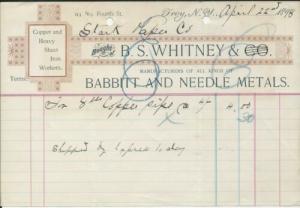 No. Fourth St. Troy, N.Y. April 22nd 1898
Stark Paper Co
Copper and
Heavy
Sheet
Iron
Workers.
Bought of B. S. WHITNEY & CO.
MANUFACTURERS OF ALL KINDS OF
BABBITT AND NEEDLE METALS.
Terms
Copper pipe 4.00
Shipped by Express to day